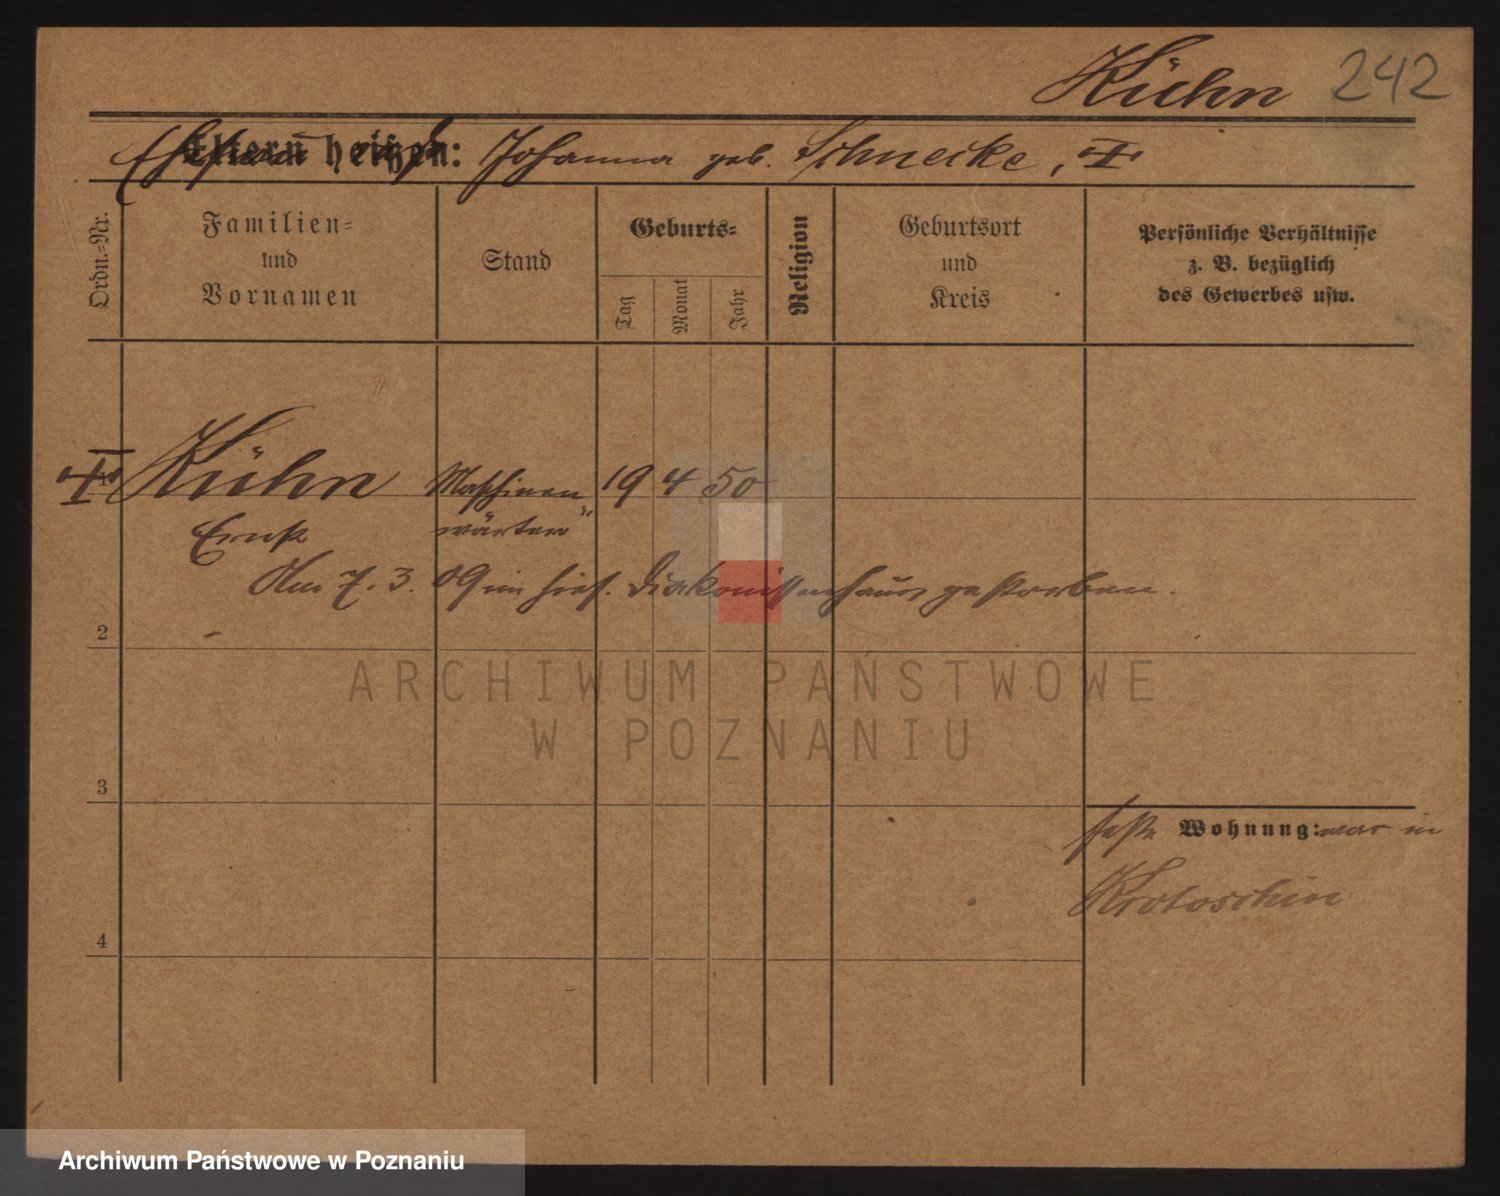 Kühn 242
Eltern heißen: Johanna geb. Schnecke, †
Ordn.=Nr.
Familien=
und
Vornamen
Stand
Geburts=
Tag
Monat
Jahr
Religion
Geburtsort
und
Kreis
Persönliche Verhältnisse
z. B. bezüglich
des Gewerbes usw.
† Kühn Maschinen 19 4 50
Ernst wärter
Am 7. 3. 09 im hies. Diakonissenhaus gestorben.
2
3
4
feste Wohnung: war in
Krotoschin
ARCHIWUM PAŃSTWOWE
W POZNANIU
Archiwum Państwowe w Poznaniu